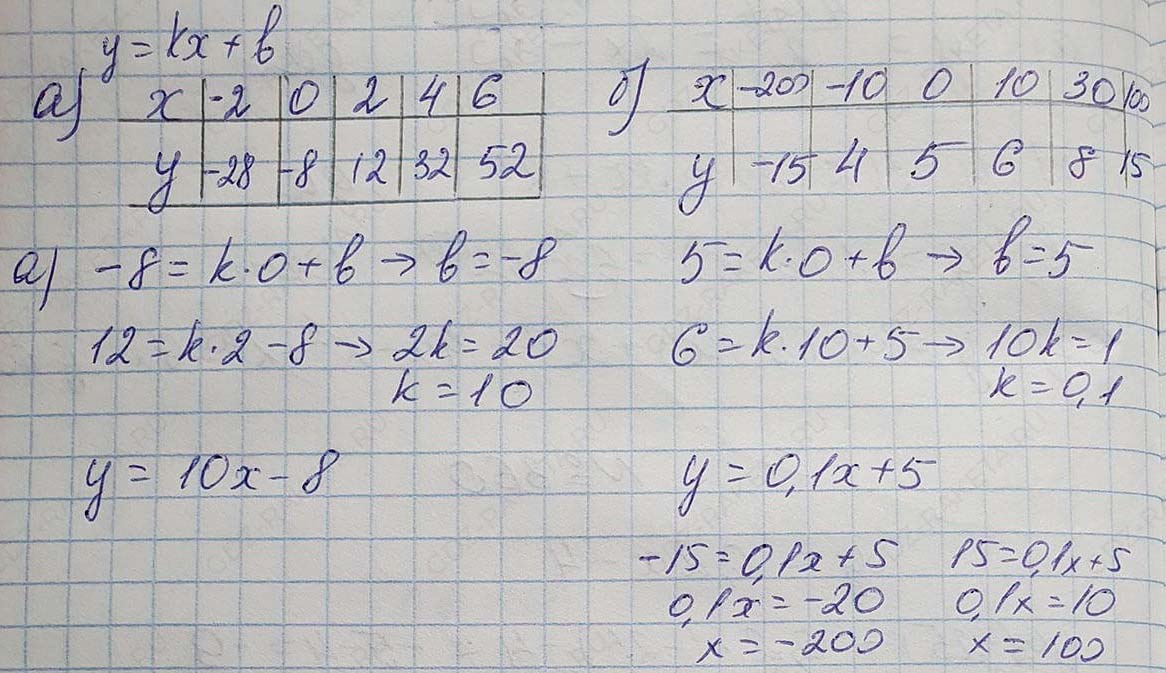 y = kx + b
а) x | -2 | 0 | 2 | 4 | 6
y | -28 | -8 | 12 | 32 | 52
б) x | -200 | -10 | 0 | 10 | 30 | 100
y | -15 | 4 | 5 | 6 | 8 | 15
а) -8 = k·0 + b → b = -8
12 = k·2 - 8 → 2k = 20
k = 10
y = 10x - 8
5 = k·0 + b → b = 5
6 = k·10 + 5 → 10k = 1
k = 0,1
y = 0,1x + 5
-15 = 0,1x + 5
0,1x = -20
x = -200
15 = 0,1x + 5
0,1x = 10
x = 100